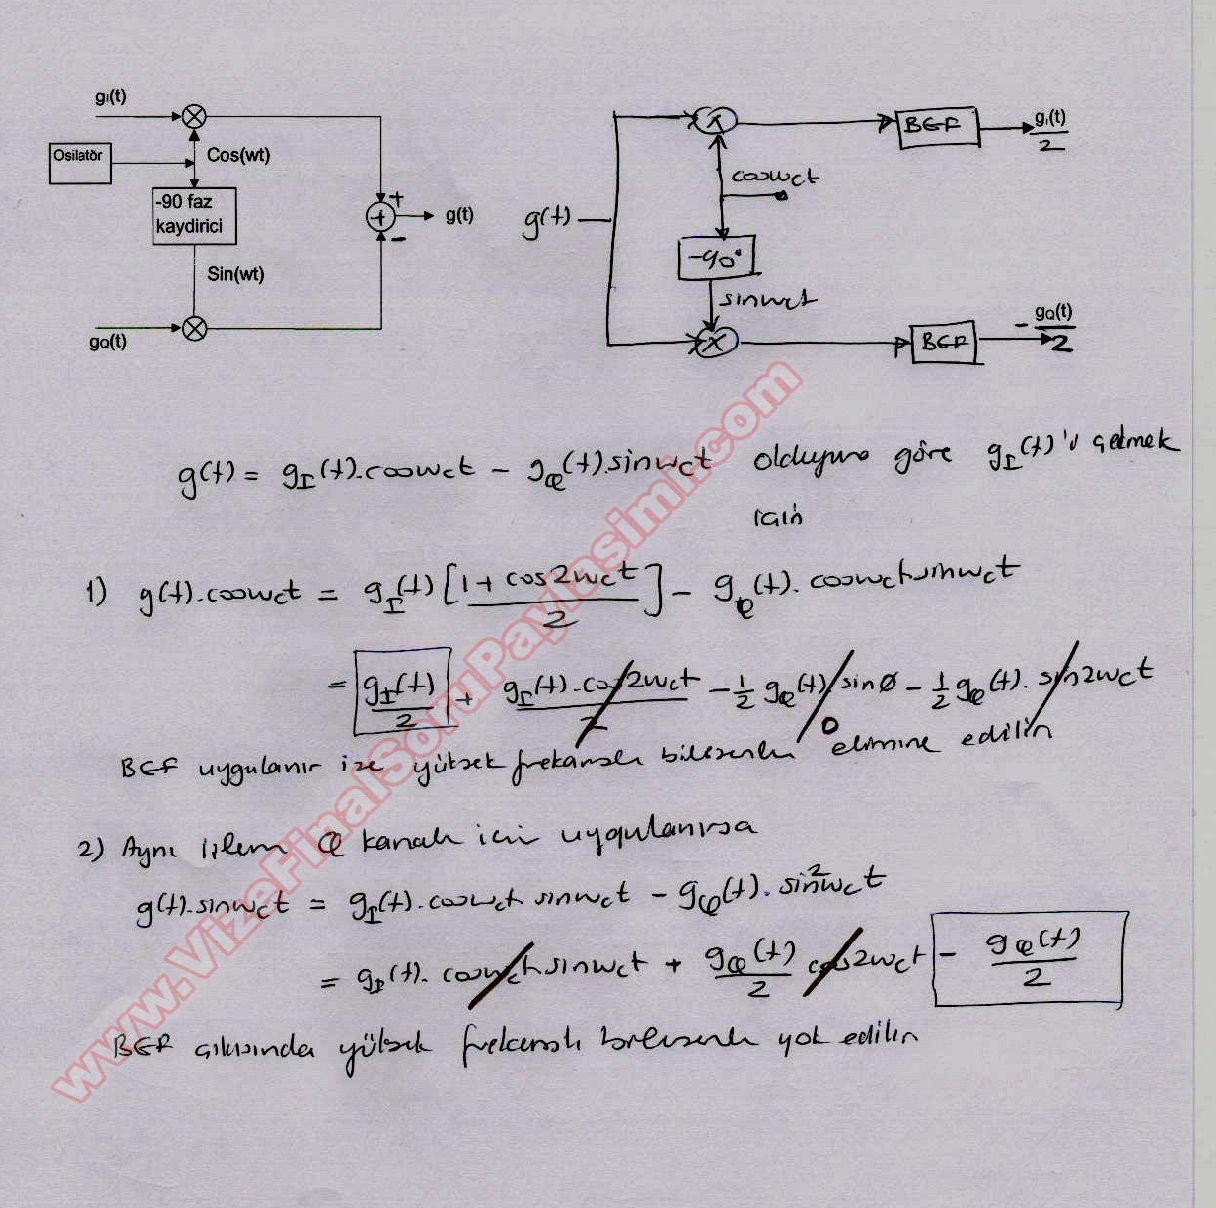 gI(t)
Osilatör
Cos(wt)
-90 faz
kaydirici
Sin(wt)
gQ(t)
+
+
-
g(t)
g(t)
coswct
-90°
sinwct
BGF
gI(t)
2
BGF
- gQ(t)
2
g(t) = gI(t).coswct - gQ(t).sinwct olduğuna göre gI(t)'i çekmek
için
1) g(t).coswct = gI(t) [1 + cos2wct / 2] - gQ(t). coswct.sinwct
= gI(t)/2 + gI(t).cos2wct/2 - 1/2 gQ(t) sin0 - 1/2 gQ(t). sin2wct
0
BGF uygulanır ise yüksek frekanslı bileşenler elimine edilir
2) Aynı işlem Q kanalı için uygulanırsa
g(t).sinwct = gI(t).coswct sinwct - gQ(t). sin²wct
= gI(t). coswct sinwct + gQ(t)/2 cos2wct - gQ(t)/2
BGF çıkışında yüksek frekanslı bileşenler yok edilir
www.VizeFinalSoruPaylasimi.com